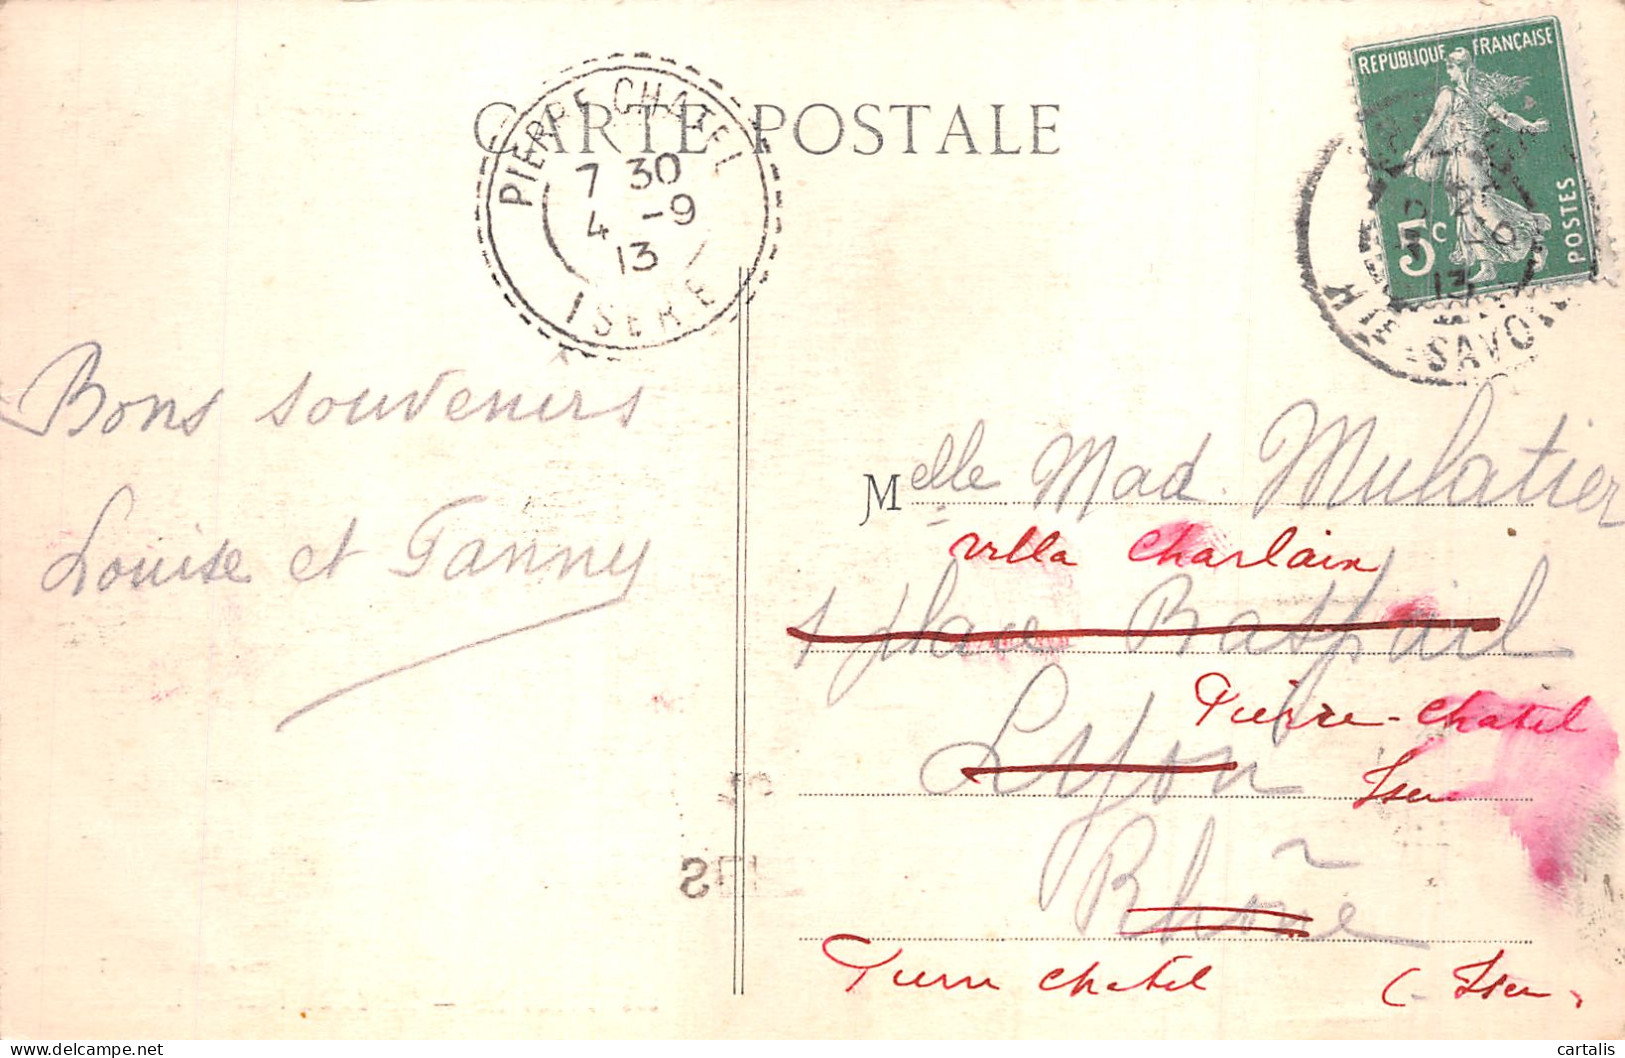 CARTE POSTALE
PIERRE CHATEL
7 30
4 -9
13
ISERE
REPUBLIQUE FRANÇAISE
5c
POSTES
13
HTE-SAVOIE
Bons souvenirs
Louise et Fanny
Melle Mad. Mulatier
villa Charlain
1 place Raspail
Pierre-Chatel
Lyon
Isère
Rhône
Pierre Chatel (Isère)
cartalis